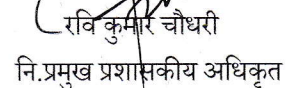 रवि कुमार चौधरी
नि.प्रमुख प्रशासकीय अधिकृत